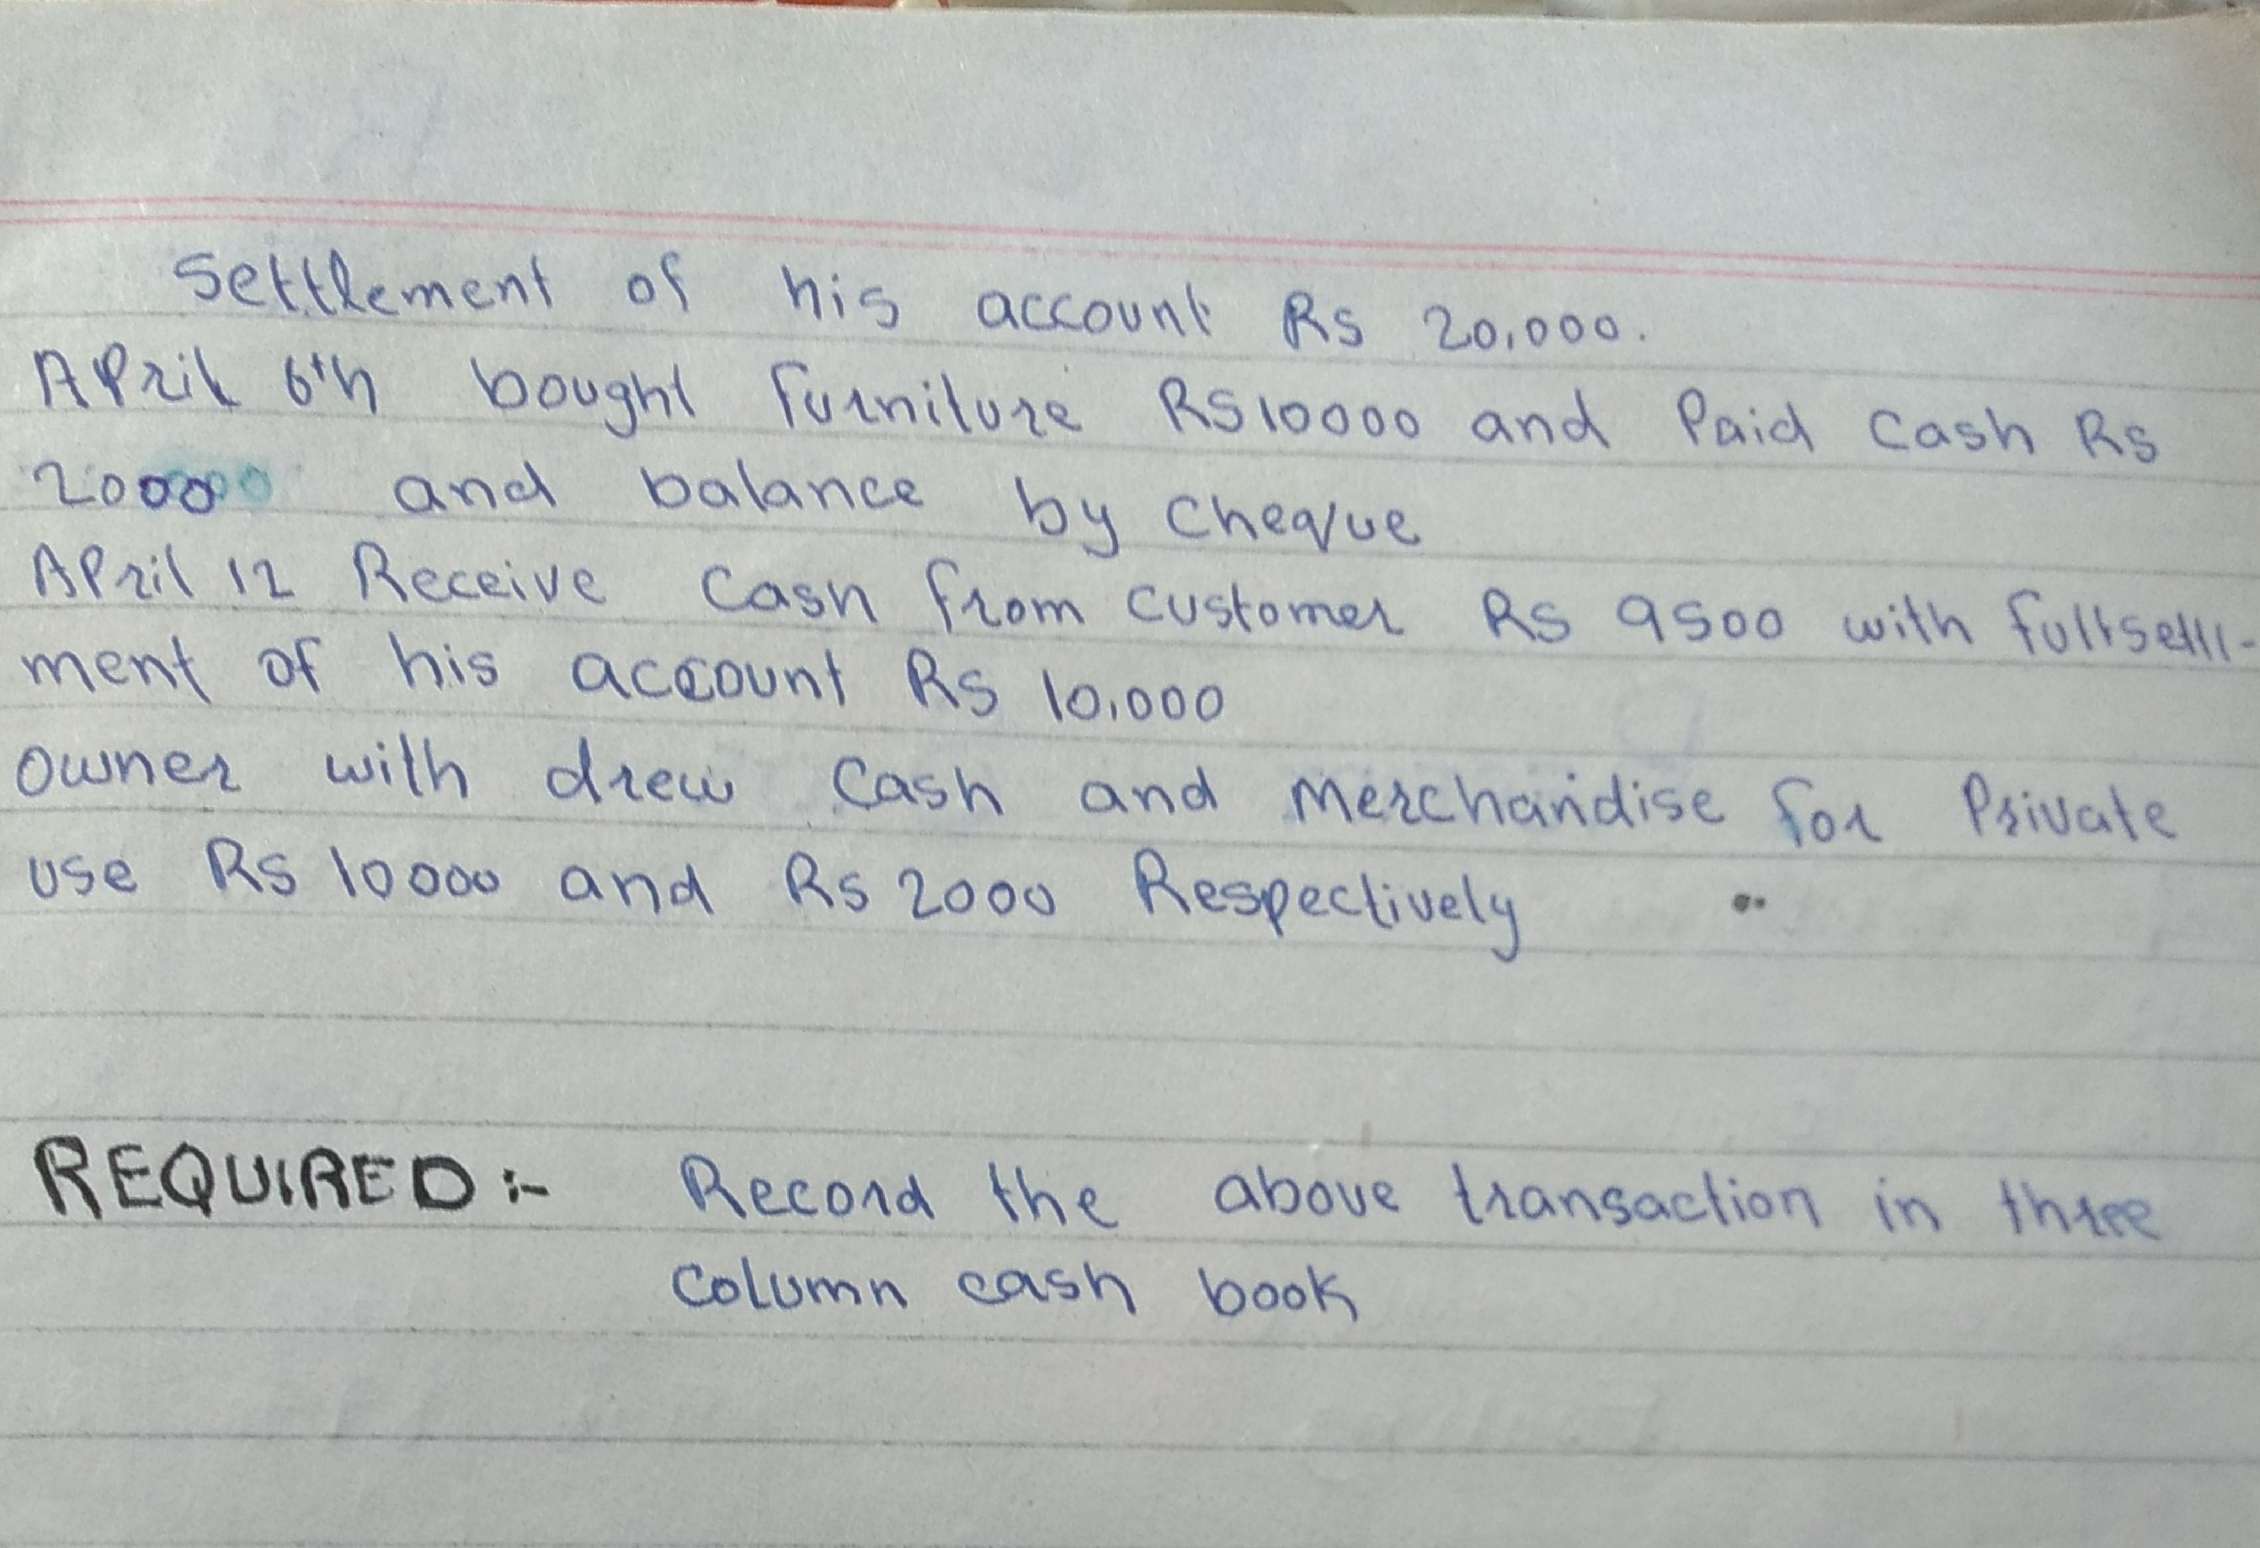 Settlement of his account Rs 20,000.
APril 6th bought furniture RS10000 and Paid Cash Rs
2000 and balance by Cheque
APril 12 Receive Cash from customer Rs 9500 with
ment of his account Rs 10,000
owner with drew Cash and Merchandise for Private
use Rs 10000 and Rs 2000 Respectively
REQUIRED :- Record the above transaction in three
column cash book